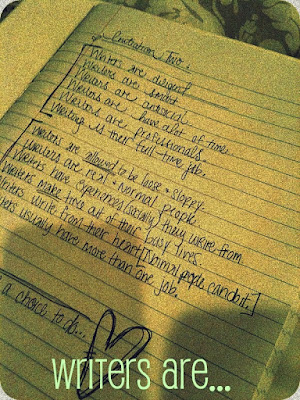 Invitation Two:
Writers are diligent
Writers are smart
Writers are antisocial
Writers are have alot of time
Writers are professionals
Writing is their full time job.
Writers are allowed to be loose + sloppy
Writers are real + normal people
Writers have experiences they write from
Writers make time out of their busy lives.
Writers write from their heart [Normal people can do it.]
usually have more than one job.
a choice to do...
WRiTERS ARE...